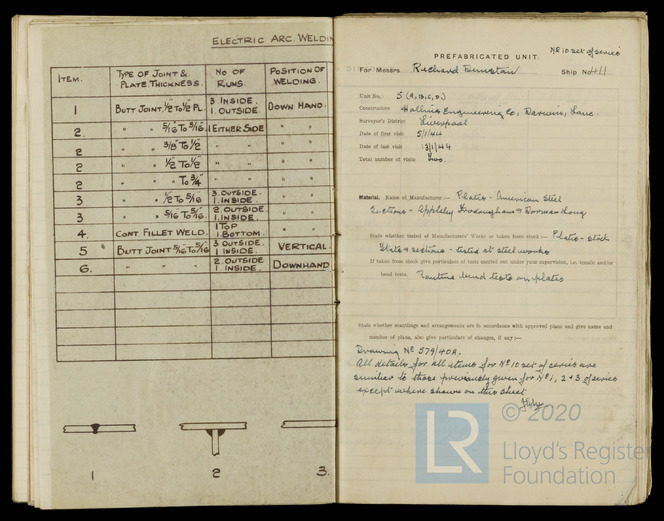 ELECTRIC ARC. WELDIN
ITEM. TYPE OF JOINT & PLATE THICKNESS. No OF RUNS. POSITION OF WELDING.
1 BUTT JOINT. ½" TO ½" PL. 3. INSIDE. 1. OUTSIDE. DOWN HAND.
2. " " 5/16" TO 5/16" 1 EITHER SIDE " "
2 " " 3/8" TO ½" " " " "
2 " " ½" TO ½" " " " "
2 " " TO ¾" " " " "
3 " " ½" TO 5/16" 3. OUTSIDE. 1. INSIDE. " "
3 " " 5/16" TO 5/16" 2. OUTSIDE 1. INSIDE. " "
4. CONT FILLET WELD. 1 TOP 1. BOTTOM. " "
5 BUTT JOINT 5/16" TO 5/16" 3 OUTSIDE. 1 INSIDE. VERTICAL.
6. " " " " 2. OUTSIDE 1 INSIDE. DOWNHAND
1 2 3.
No 10 set of series
PREFABRICATED UNIT.
For Messrs. Richard Dunstan Ship No 411
Unit No. 5 (A, B, C, D.)
Constructors Hollins Engineering Co, Darwen, Lanc.
Surveyor's District Liverpool
Date of first visit 5/1/44
Date of last visit 13/1/44
Total number of visits Two.
Material. Name of Manufacturer:— Plates - American Steel
Sections - Appleby Frodingham & Dorman Long
State whether tested at Manufacturers' Works or taken from stock:— Plates - stock
Slabs & sections - tested at steel works
If taken from stock give particulars of tests carried out under your supervision, i.e. tensile and/or
bend tests. Routine bend tests on plates
State whether scantlings and arrangements are in accordance with approved plans and give name and
number of plans, also give particulars of changes, if any:—
Drawing No 579/40A.
All details for all items for No 10 set of series are
similar to those previously given for No 1, 2 & 3 of series
except where shown on this sheet
© 2020
LR
Lloyd's Register
Foundation